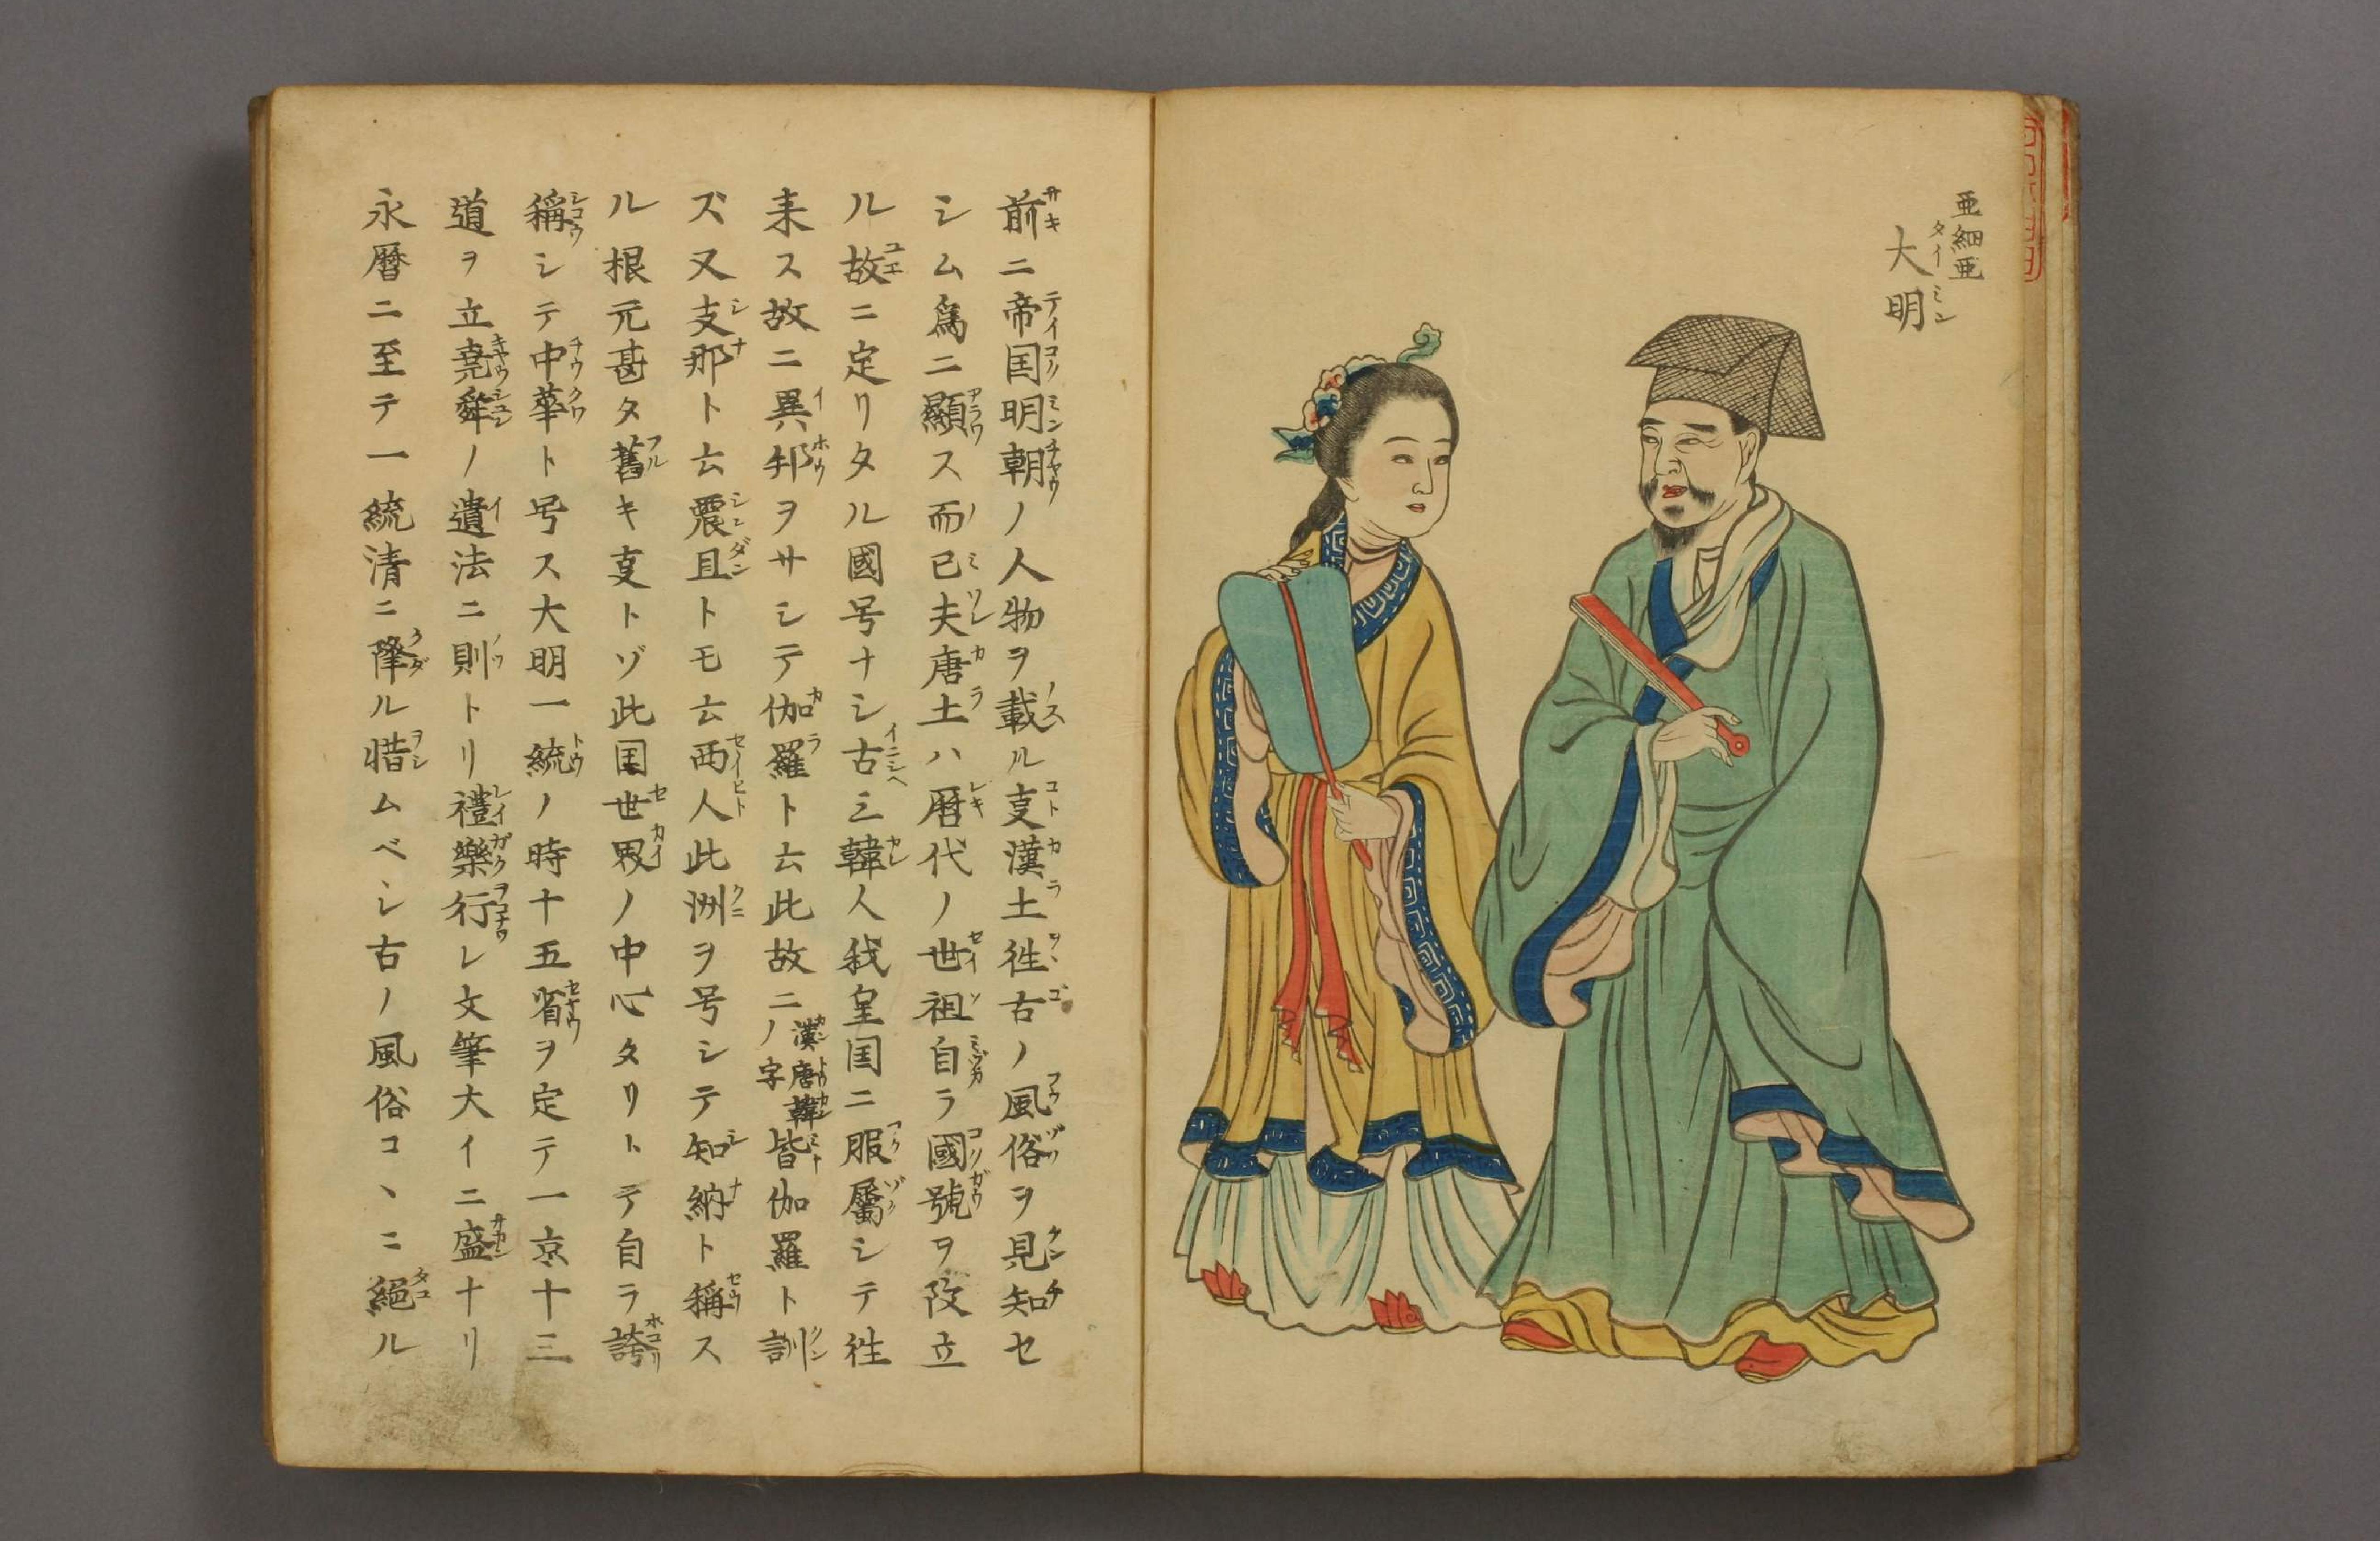 亜細亜
大明
前ニ帝国明朝ノ人物ヲ載ル叓漢土徃古ノ風俗ヲ見知セ
シム爲ニ顯ス而已夫唐土ハ暦代ノ世祖自ラ國號ヲ改立
ル故ニ定リタル國号ナシ古ヘ三韓人我皇国ニ服屬シテ徃
来ス故ニ異邦ヲサシテ伽羅ト云此故ニ漢唐韓ノ字皆伽羅ト訓
ズ又支那ト云震旦トモ云西人此洲ヲ号シテ知納ト稱ス
ル根元甚タ舊キ叓トゾ此国世界ノ中心タリトテ自ラ誇
稱シテ中華ト号ス大明一統ノ時十五省ヲ定テ一京十三
道ヲ立堯舜ノ遺法ニ則トリ禮樂行レ文筆大イニ盛ナリ
永暦ニ至テ一統清ニ降ル惜ムベシ古ノ風俗コヽニ絕ル